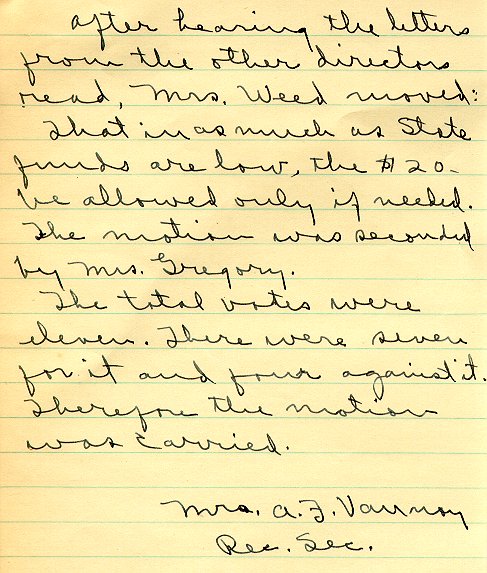 After hearing the letters
from the other directors
read, Mrs. Weed moved:
That in as much as State
funds are low, the $20-
be allowed only if needed.
The motion was seconded
by Mrs. Gregory.
The total votes were
eleven. There were seven
for it and four against it.
Therefore the motion
was carried.
Mrs. A. F. Vannoy
Rec. Sec.